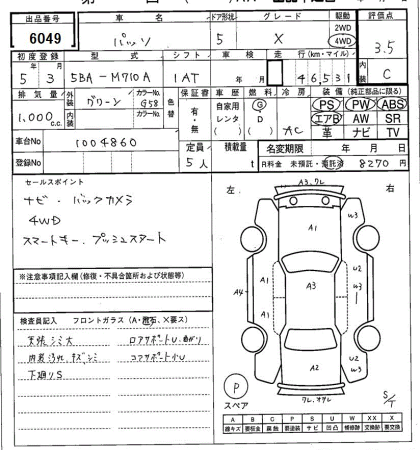 出品番号 車名 ドア形状 グレード 駆動 評価点
6049 パッソ 5 X 2WD 4WD 3.5
初度登録 型式 シフト 車検 走行(km・マイル) 内装
5年 3月 5BA-M710A 1AT 年 月 46,531 C
排気量 外装 カラーNo. 色替 保証書 車歴 燃料 冷房 装備 (純正部品に限る)
1,000 c.c. グリーン G58 有・無 自家用 レンタ G D AC PS PW ABS
内装 カラーNo. エアB AW SR
革 ナビ TV
車台No 1004860 定員 積載量 名変期限 年 月 日
登録No 5人 t R料金 未預託・預託済 8270円
セールスポイント 左 右
ナビ・バックカメラ
4WD
スマートキー・プッシュスタート
A3.ワレ
A1 W3
A1 A3 U2 W3
A4 A1 U2
A2 W3
※注意事項記入欄(修復・不具合箇所および状態等)
検査員記入 フロントガラス(A・飛石、X要ス)
天張シミ大 ロアサポートU・曲がり
内装汚れ・キズ・シミ コアサポート小U
下廻りS
P
スペア
ワレ.オサレ
S/T
A B C P S U W X XX X
線キズ 要板金 腐触 要塗装 サビ 凹凸 補修跡 交換跡 要交換